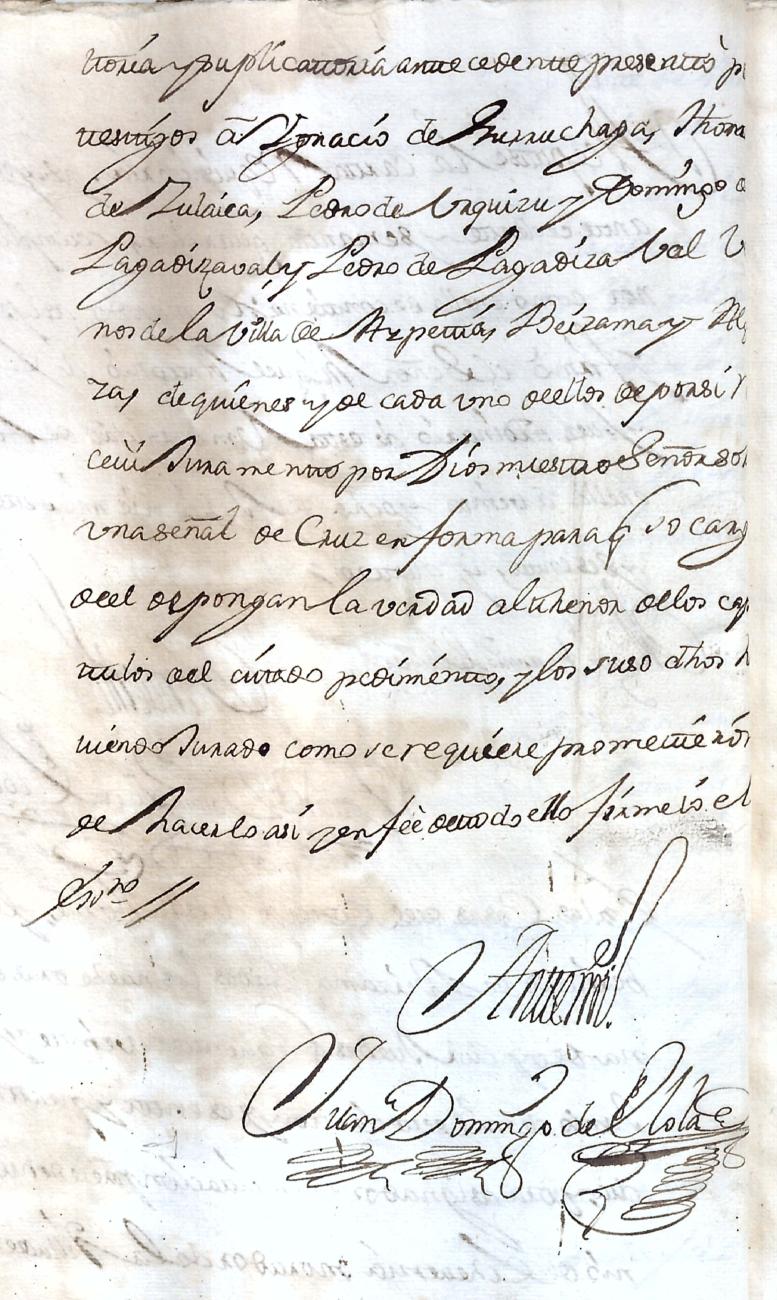 ttoria y puplicattoria antecedentte presenttò p
testigos a Ygnacio de Gurruchaga, Thom
de Zulaica, Pedro de Vrquizu y Domingo
Lagadizaval y Pedro de Lagadizaval V
nos de la Villa de Azpettia, Beizama y Al
zas, de quienes y de cada vno de ellos de por si r
ceui Juramentto por Dios nuestro Señor so
vna señal de Cruz en forma para q so carg
de el depongan la verdad al thenor de los cap
tulos de el citado pedimentto, y los suso dhos h
uiendo Jurado como se requiere promettierõ
de hacerlo asi y en feè de ttodo ello firme io el
Essno //
Antemi
Juan Domingo de Elola